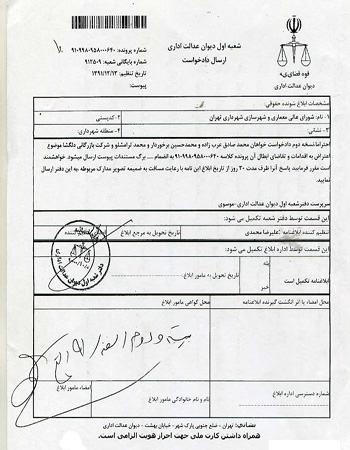 شعبه اول دیوان عدالت اداری
ارسال دادخواست
قوه قضاییه
دیوان عدالت اداری
شماره پرونده: ۹۱۰۹۹۸۰۹۵۸۰۰۰۶۴۰
شماره بایگانی شعبه: ۹۱۲۵۰۹
تاریخ تنظیم: ۱۳۹۱/۱۲/۱۳
پیوست:
مشخصات ابلاغ شونده حقوقی:
۱- نام: شورای عالی معماری و شهرسازی شهرداری تهران
۲- کدپستی
۳- نشانی:
۴- منطقه شهرداری:
احتراما نسخه دوم دادخواست خواهان محمد صادق عرب زاده و محمدحسین برخوردار و محمد ترامشلو و شرکت بازرگانی دلگشا موضوع
اعتراض به اقدامات و تقاضای ابطال آن پرونده کلاسه ۹۱۰۹۹۸۰۹۵۸۰۰۰۶۴۰ به انضمام .... برگ مستندات پیوست ارسال میشود. خواهشمند
است مقرر فرمایید پاسخ آنرا ظرف مدت ۳۰ روز از تاریخ ابلاغ این نامه با رعایت مسافت به ضمیمه تصویر مدارک مربوطه به این دفتر ارسال
نمایید.
سرپرست دفتر شعبه اول دیوان عدالت اداری - موسوی
این قسمت توسط دفتر شعبه تکمیل می شود:
تنظیم کننده ابلاغنامه: علیرضا محمدی
تاریخ تحویل به مرجع ابلاغ
امضاء تنظیم کننده
این قسمت توسط اداره ابلاغ تکمیل می شود:
ابلاغنامه تکمیل است
بله
خیر
تاریخ تحویل به مامور ابلاغ
محل امضاء یا اثر انگشت گیرنده ابلاغنامه
محل گواهی مامور ابلاغ
شماره دسترسی اداره ابلاغ:
نام و نام خانوادگی مامور ابلاغ
امضاء مامور ابلاغ
نشانی: تهران - ضلع جنوبی پارک شهر - خیابان بهشت - دیوان عدالت اداری
همراه داشتن کارت ملی جهت احراز هویت الزامی است.